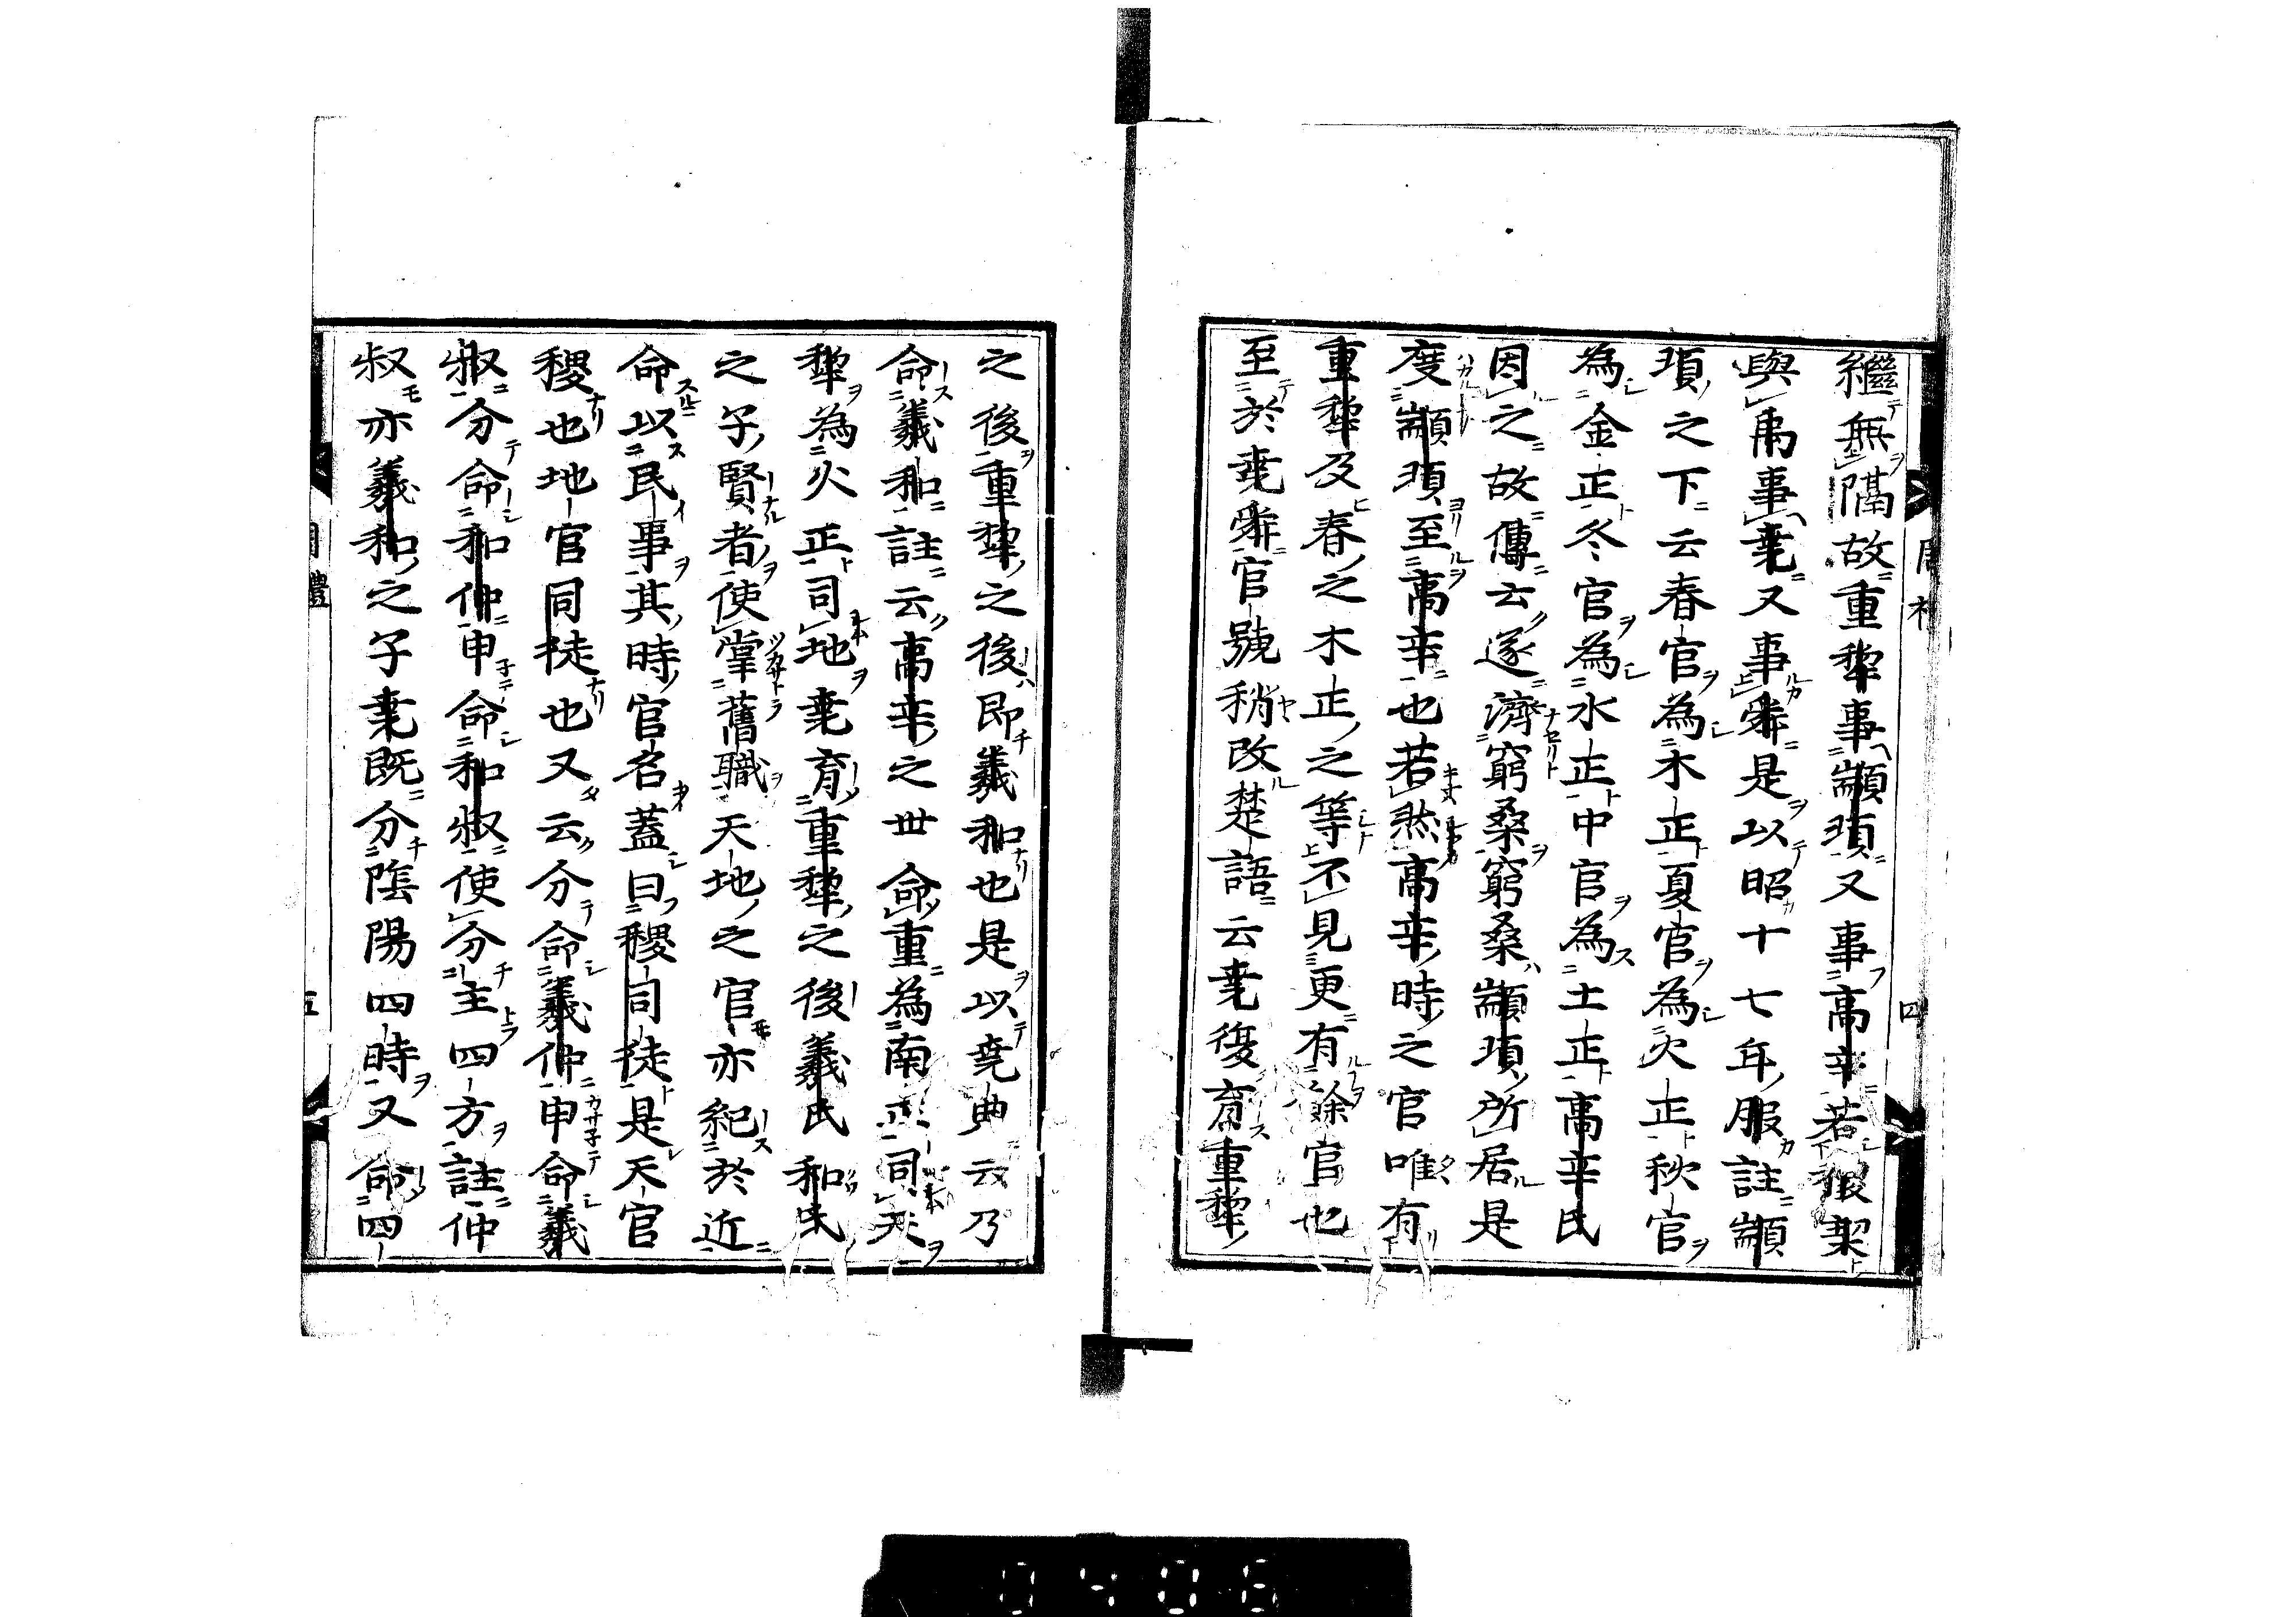 繼無隔故重犂事顓頊又事高辛若稷契
與禹事堯又事舜是以昭十七年服註顓
頊之下云春官為木正夏官為火正秋官
為金正冬官為水正中官為土正高辛氏
因之故傳云遂濟窮桑窮桑顓頊所居是
度顓頊至高辛也若然高辛時之官唯有
重犂及春之木正之等不見更有餘官也
至於堯舜官號稍改楚語云堯復育重犂
之後重犂之後即羲和也是以堯典云乃
命羲和註云高辛之世命重為南正司天
犂為火正司地堯育重犂之後羲氏和氏
之子賢者使掌舊職天地之官亦紀於近
命以民事其時官名蓋曰稷司徒是天官
稷也地官司徒也又云分命羲仲申命羲
叔分命和仲申命和叔使分主四方註仲
叔亦羲和之子堯既分陰陽四時又命四
四
五
0406